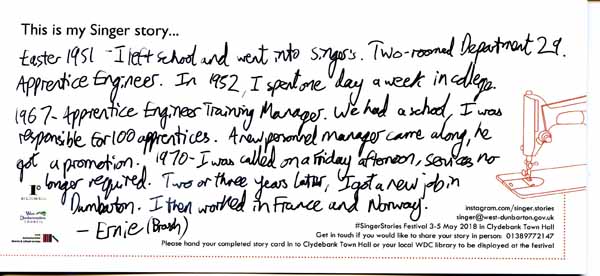 This is my Singer story...
Easter 1951 - I left school and went into Singer's. Two-roomed Department 29.
Apprentice Engineer. In 1952, I spent one day a week in college.
1967- Apprentice Engineer Training Manager. We had a school, I was
responsible for 100 apprentices. A new personnel manager came along, he
got a promotion. 1970- I was called on a Friday afternoon, services no
longer required. Two or three years later, I got a new job in
Dumbarton. I then worked in France and Norway.
- Ernie (Brash)
instagram.com/singer.stories
singer@west-dunbarton.gov.uk
#SingerStories Festival 3-5 May 2018 in Clydebank Town Hall
Get in touch if you would like to share your story in person: 01389772147
Please hand your completed story card in to Clydebank Town Hall or your local WDC library to be displayed at the festival